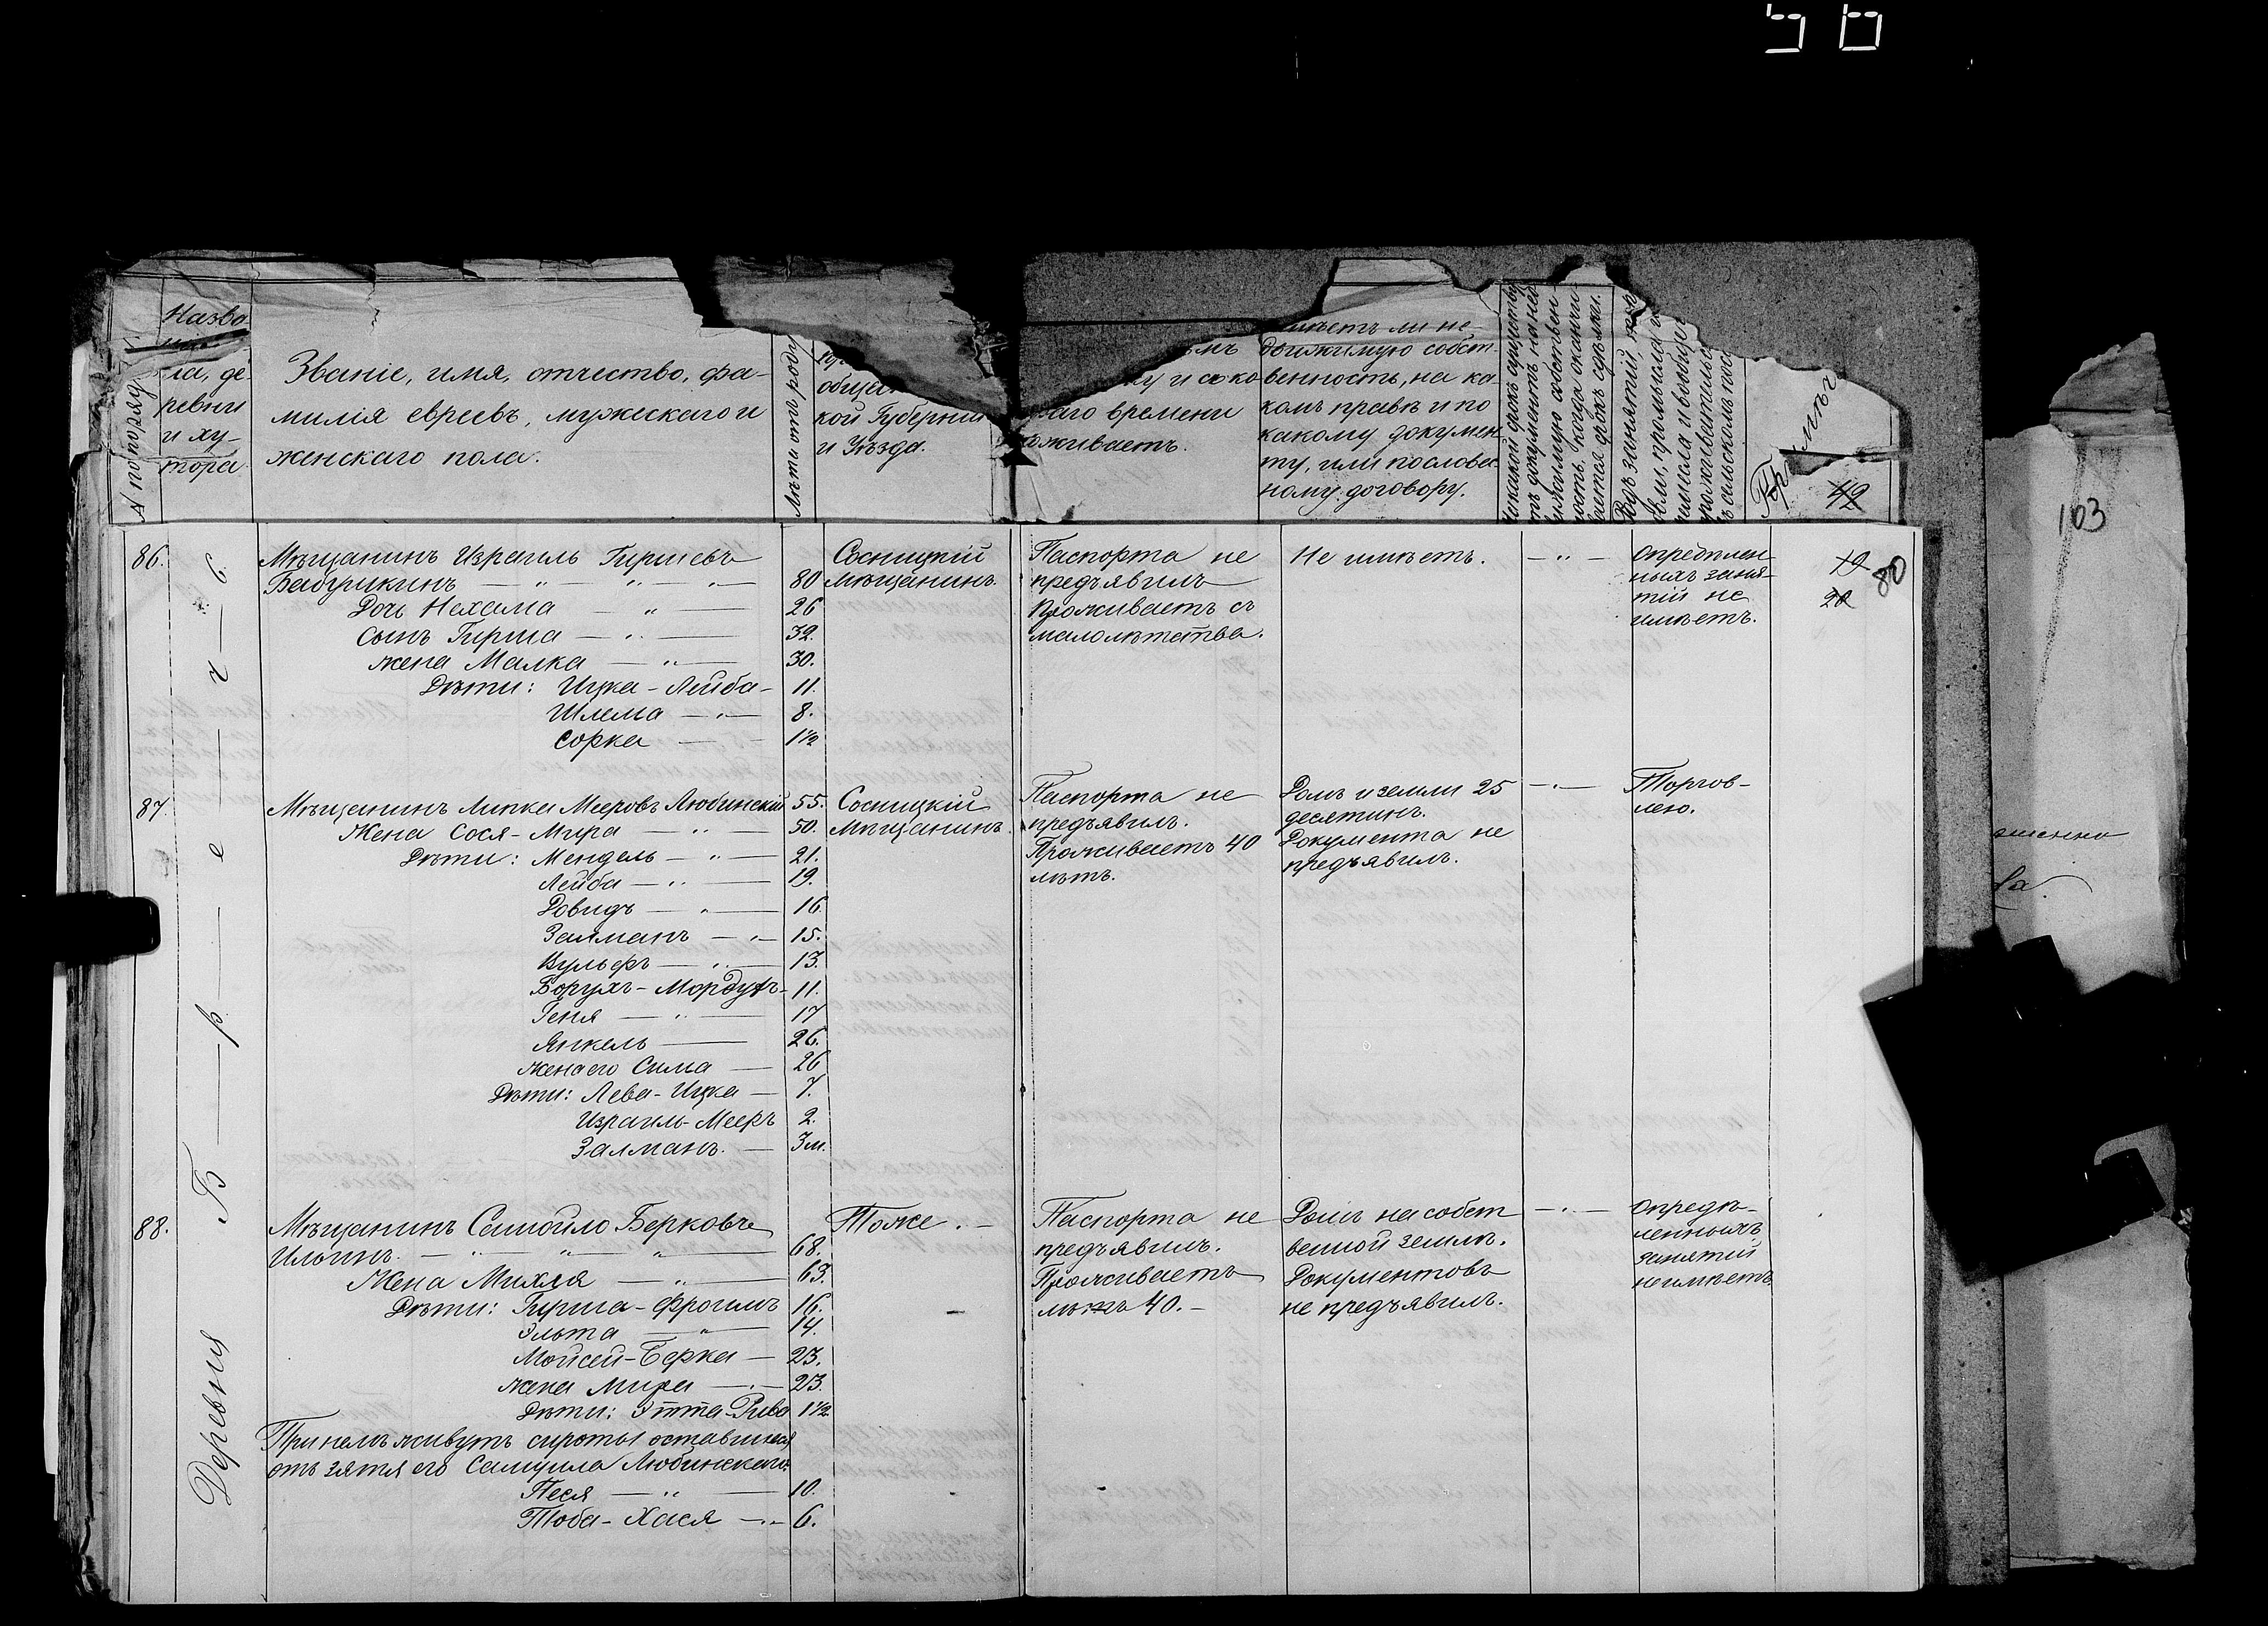 № по поряду
Назва
ла, де-
ревни
и ху-
тора
Званіе, имя, отчество, фа-
милія евреевъ, мужескаго и
женскаго пола.
Лѣта отъ роду
общес
кой Губерніи
и Уѣзда.
аго времени
оживаетъ.
имѣетъ ли не-
движимую собст-
венность, на ка-
комъ правѣ и по
какому докумен
ту, или по словес
ному договору.
42
103
80
Деревня Б р е ч ь
86.
Мѣщанинъ Израиль Гиршевъ
Бабушкинъ — " — " — " — 80
Дочь Нехама — " — 26
Сынъ Гирша — " — 32.
жена Малка — " — 30.
Дѣти: Ицка-Лейба — 11.
Шлема — " — 8.
Сорка — 1½
Сосницкій
мѣщанинъ.
Паспорта не
предъявилъ
Проживаетъ съ
малолѣтства.
Не имѣетъ.
— " —
Опредѣлен-
ныхъ заня-
тій не
имѣетъ.
87.
Мѣщанинъ Липка Мееровъ Любинскій 55.
Жена Сося-Мира — " — 50.
Дѣти: Мендель — " — 21.
Лейба — " — 19.
Довидъ — " — 16.
Залманъ — " — 15.
Вульфъ — " — 13.
Борухъ-Мордухъ — 11.
Геня — " — 17
Янкель — 26.
жена его Сима — 26
Дѣти: Лева-Ицка — 7.
Израиль-Мееръ 2.
Залманъ. — 3 м.
Сосницкій
Мѣщанинъ.
Паспорта не
предъявилъ.
Проживаетъ 40
лѣтъ.
Домъ и земли 25
десятинъ.
Документа не
предъявилъ.
— " —
Торгов-
лею.
88.
Мѣщанинъ Самойло Берковъ
Ильинъ. — " — " — " — 68.
Жена Михля — " — 63.
Дѣти: Гирша-Фроимъ 16.
Эльта — " — 14.
Мойсей-Берка — 23.
жена Мира — " — 23.
Дѣти: Этта-Рива 1½
При немъ живутъ сироты оставшіеся
отъ зятя его Самуила Любинскаго:
Песя — " — 10.
Тоба-Хася — " — 6.
Тоже. —
Паспорта не
предъявилъ.
Проживаетъ
лѣтъ 40. —
Домъ на собст
венной землѣ.
Документовъ
не предъявилъ.
— " —
Опредѣ-
ленныхъ
занятій
не имѣетъ.